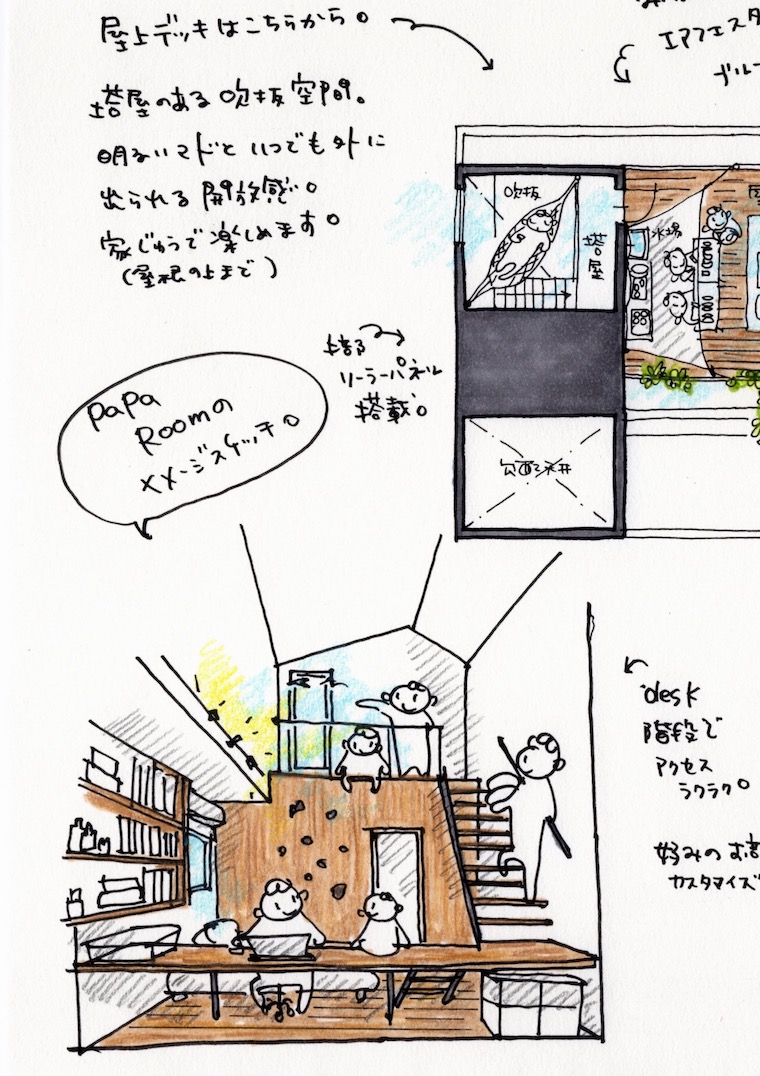 屋上デッキはこちらから。
塔屋のある吹抜空間。
明るいマドといつでも外に
出られる開放感。
家じゅうで楽しめます。
(屋根の上まで)
エアフェスタ
ブルー
吹抜
塔屋
水場
上部
ソーラーパネル
搭載。
勾配天井
PaPa
Roomの
イメージスケッチ。
desk
階段で
アクセス
ラクラク。
好みのお部
カスタマイズ